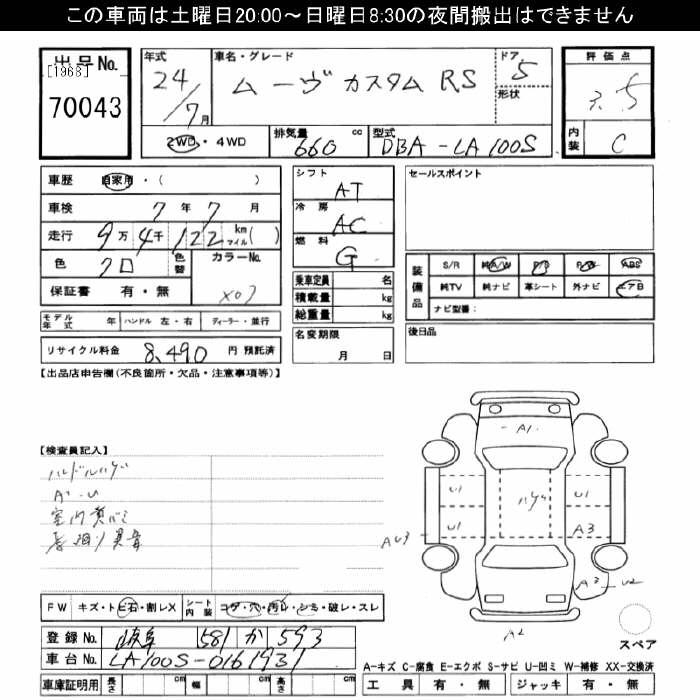 この車両は土曜日20:00～日曜日8:30の夜間搬出はできません
出品No.
[1968]
70043
年式 24/7月
車名・グレード ムーヴ カスタム RS
ドア 5
形状
評価点 3.5
2WD・4WD
排気量 660 cc
型式 DBA-LA100S
内装 C
車歴 自家用・( )
車検 7年7月
走行 9万4千122 km マイル( )
色 クロ 色替
カラーNo. X07
保証書 有・無
シフト AT
冷房 AC
燃料 G
乗車定員 名
積載量 kg
総重量 kg
名変期限 月 日
セールスポイント
装備品
S/R 純A/W P/S P/W ABS
純TV 純ナビ 革シート 外ナビ エアB
ナビ型番:
後日品
モデル年式 年 ハンドル 左・右 ディーラー・並行
リサイクル料金 8,490 円 預託済
【出品店申告欄(不良箇所・欠品・注意事項等)】
【検査員記入】
ハンドルハゲ
A・U
A1
U1
U1
ハゲ
U1
A3
AU3
A2
U2
A2
FW キズ・トビ石・割レX
シート内装 コゲ・穴・汚レ・シミ・破レ・スレ
スペア
登録No. 岐阜 581 か 593
車台No. LA100S-0161931
A-キズ C-腐食 E-エクボ S-サビ U-凹ミ W-補修 XX-交換済
車庫証明用 長さ cm 幅 cm 高さ cm
工具 有・無 ジャッキ 有・無